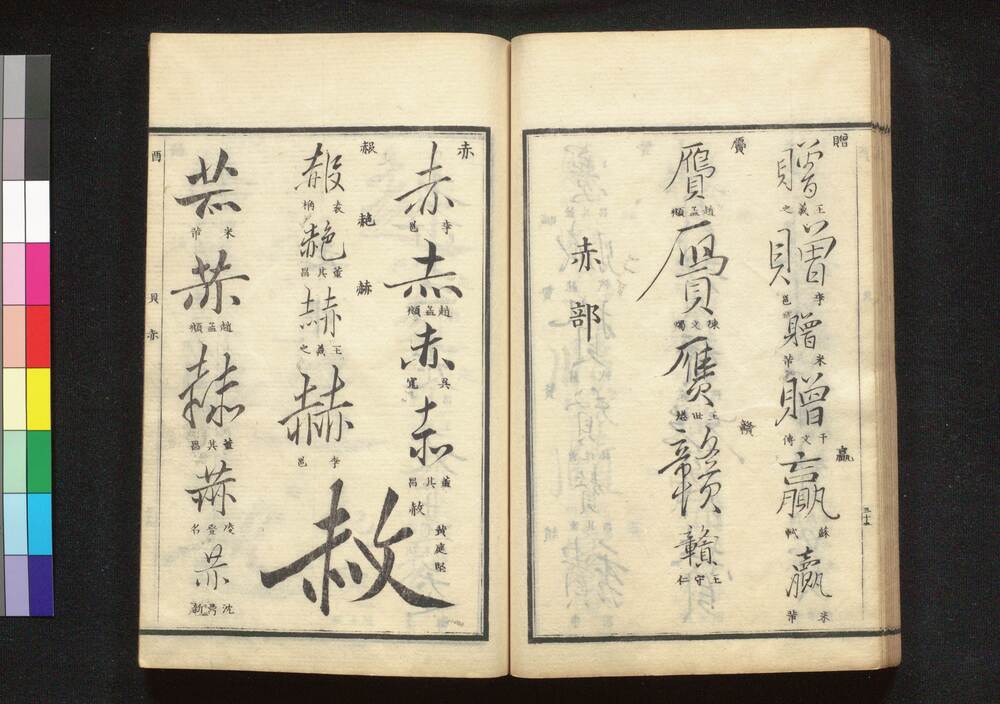 贈
贈
王羲之
贈
李邕
贈
米芾
贈
干文傳
贏
贏
蘇軾
贏
米芾
贗
贗
趙孟頫
贗
陳文燭
贗
王世懋
贛
贛
贛
王守仁
赤部
赤
赤
李邕
赤
趙孟頫
赤
吳寬
赤
董其昌
赦
赦
黃庭堅
赧
赧
袁桷
赩
赩
董其昌
赫
赫
王羲之
赫
李邕
赫
米芾
赫
趙孟頫
赫
董其昌
赫
凌登名
赫
酉
貝
赤